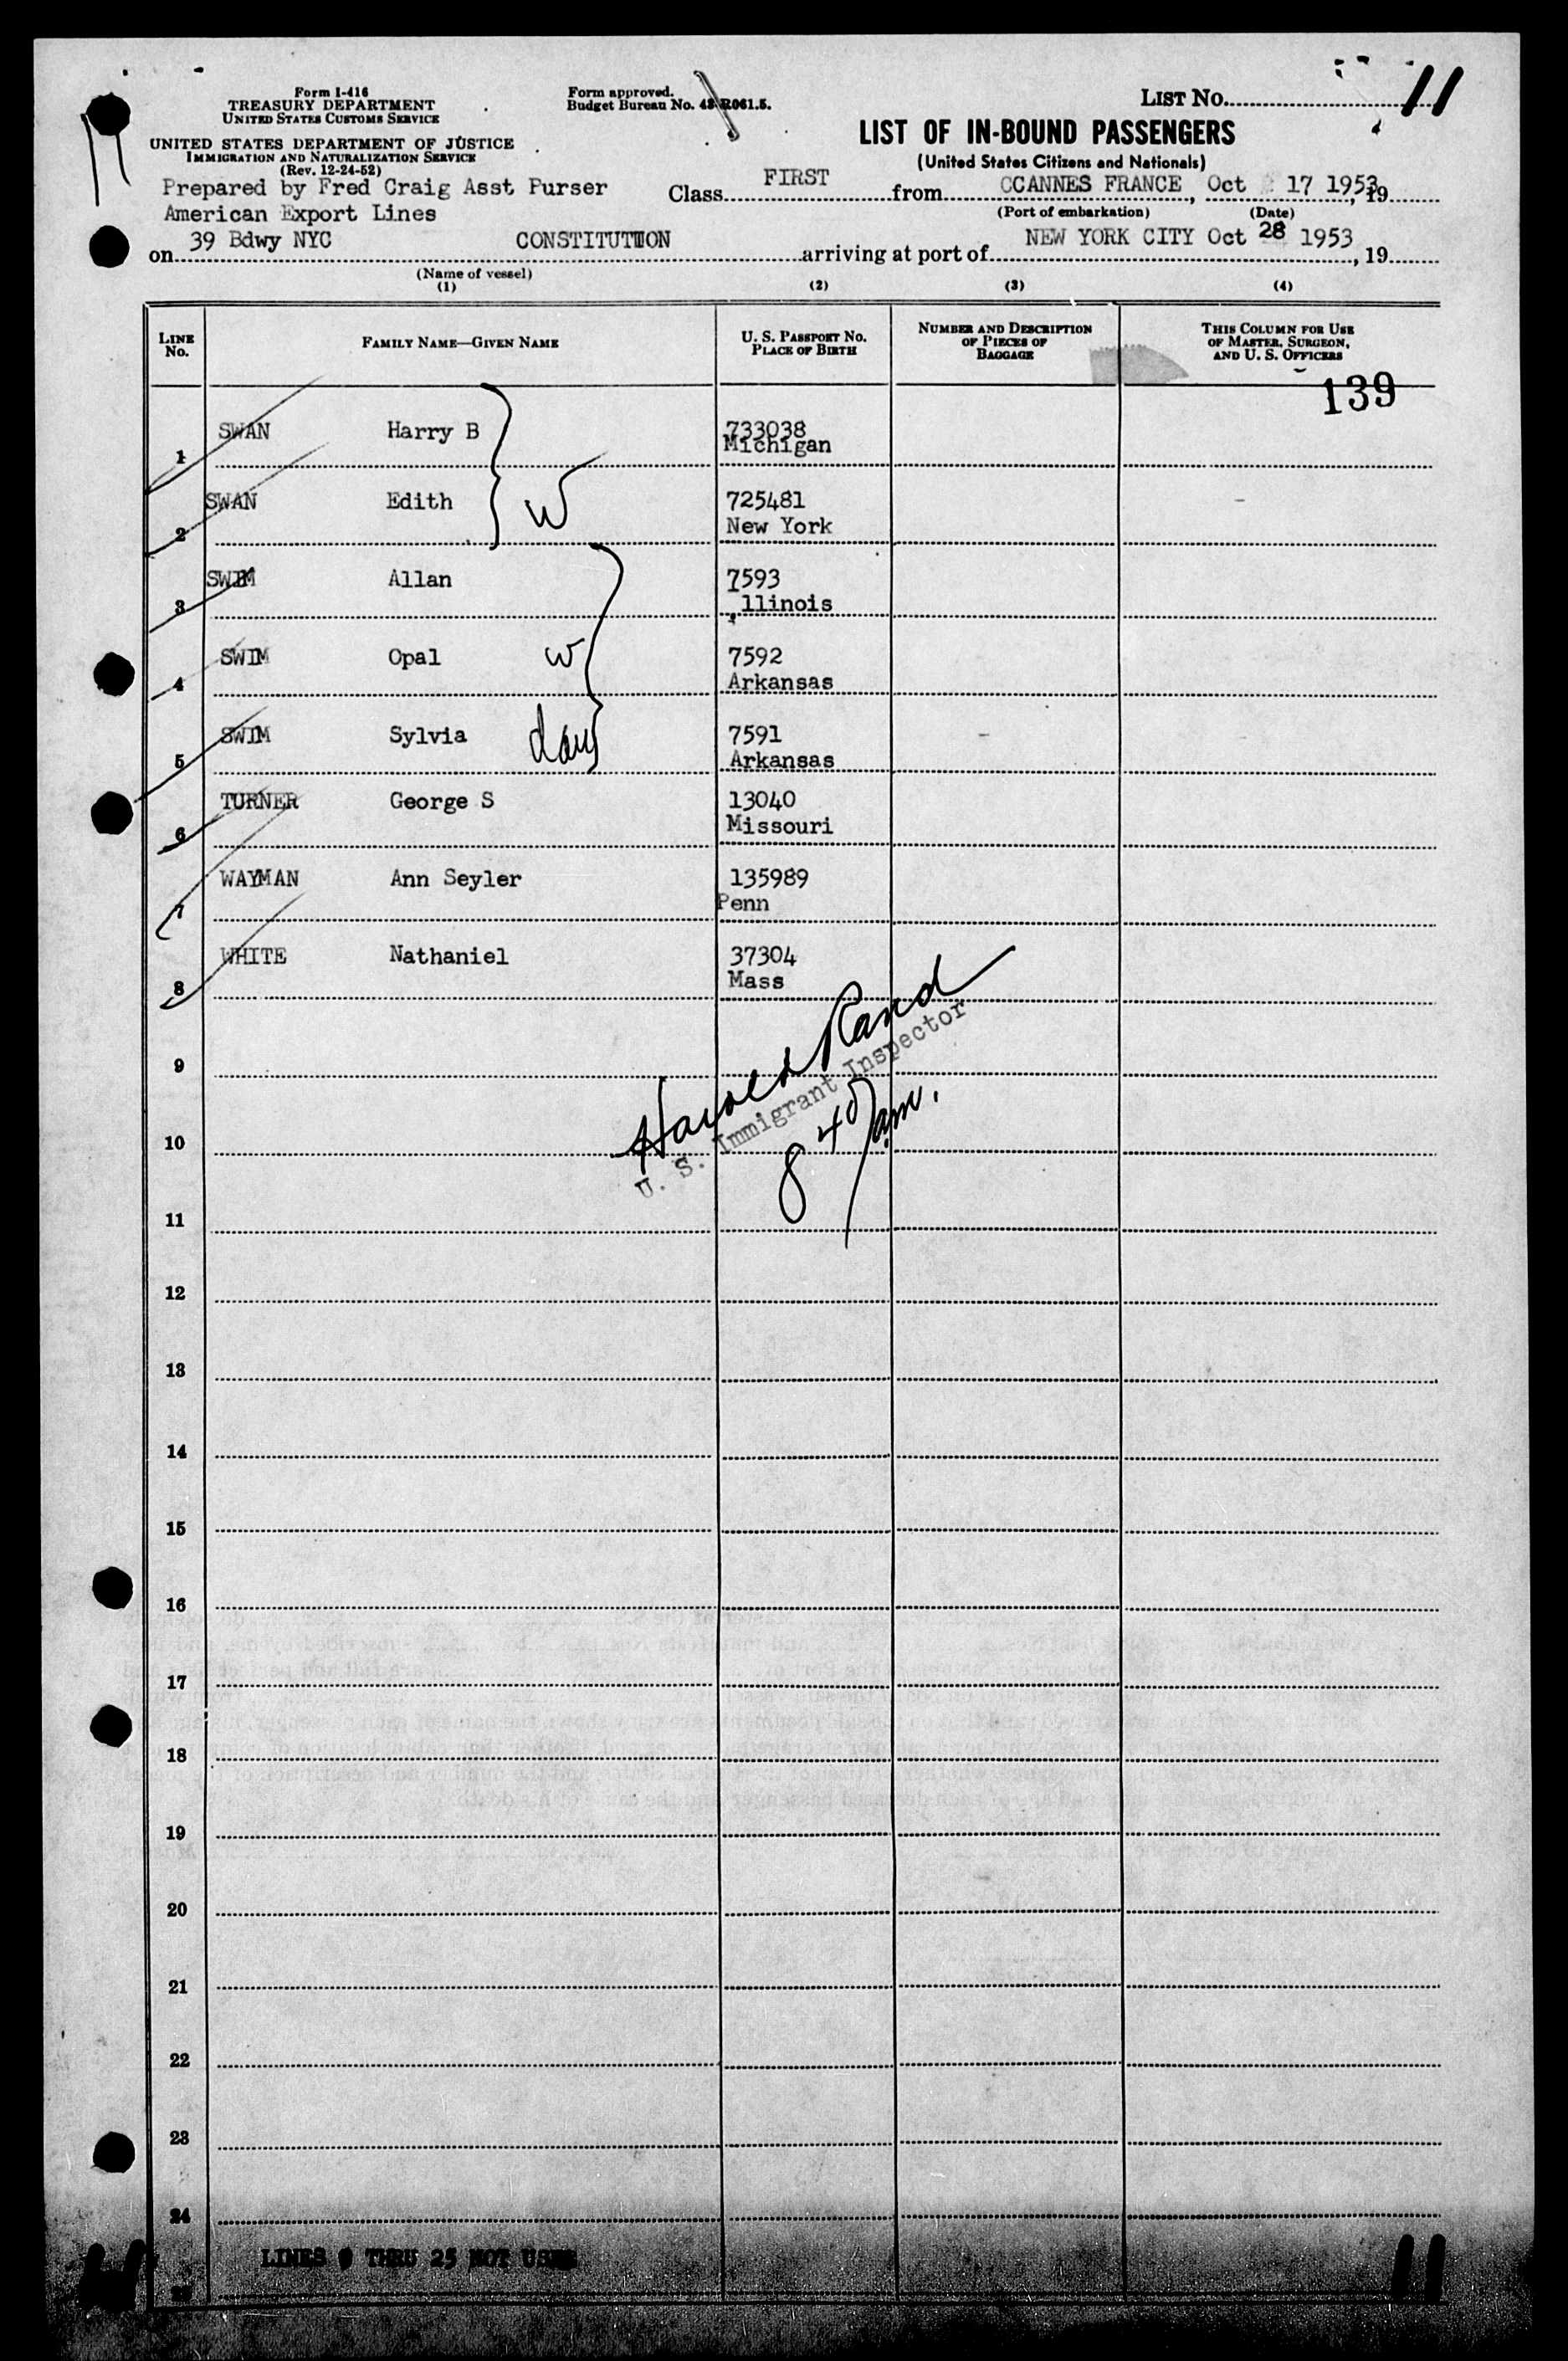 Form I-416
TREASURY DEPARTMENT
UNITED STATES CUSTOMS SERVICE
UNITED STATES DEPARTMENT OF JUSTICE
IMMIGRATION AND NATURALIZATION SERVICE
(Rev. 12-24-52)
Form approved.
Budget Bureau No. 43-R061.5.
LIST NO. 11
LIST OF IN-BOUND PASSENGERS
(United States Citizens and Nationals)
Prepared by Fred Craig Asst Purser
American Export Lines
39 Bdwy NYC
Class FIRST from CCANNES FRANCE, Oct 17 1953, 19
(Port of embarkation) (Date)
on CONSTITUTION arriving at port of NEW YORK CITY Oct 28 1953, 19
(Name of vessel)
(1) (2) (3) (4)
LINE NO.
FAMILY NAME—GIVEN NAME
U. S. PASSPORT NO. PLACE OF BIRTH
NUMBER AND DESCRIPTION OF PIECES OF BAGGAGE
THIS COLUMN FOR USE OF MASTER, SURGEON, AND U. S. OFFICERS
139
1 SWAN Harry B 733038
Michigan
2 SWAN Edith W 725481
New York
3 SWIM Allan 7593
Illinois
4 SWIM Opal W 7592
Arkansas
5 SWIM Sylvia dau 7591
Arkansas
6 TURNER George S 13040
Missouri
7 WAYMAN Ann Seyler 135989
Penn
8 WHITE Nathaniel 37304
Mass
Harold Rand
U. S. Immigrant Inspector
8 40 am.
9
10
11
12
13
14
15
16
17
18
19
20
21
22
23
24
LINES 9 THRU 25 NOT USED
11